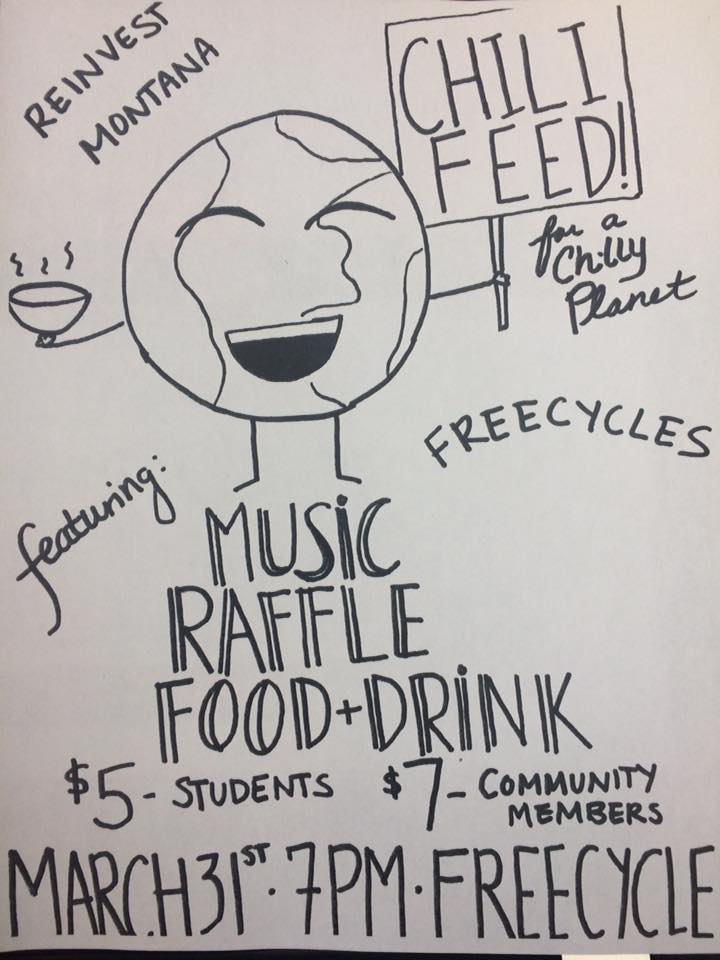 REINVEST
MONTANA
CHILI
FEED!
for a
Chilly
Planet
FREECYCLES
featuring:
MUSIC
RAFFLE
FOOD+DRINK
$5- STUDENTS $7- COMMUNITY
MEMBERS
MARCH 31ST · 7PM · FREECYCLE